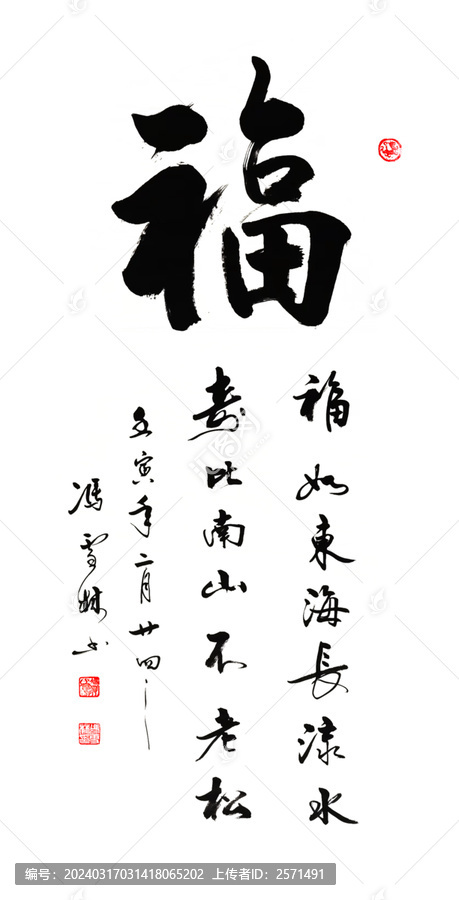 福
福如東海長流水
壽比南山不老松
壬寅年二月廿四日
馮雪林书
编号：20240317031418065202 上传者ID：2571491